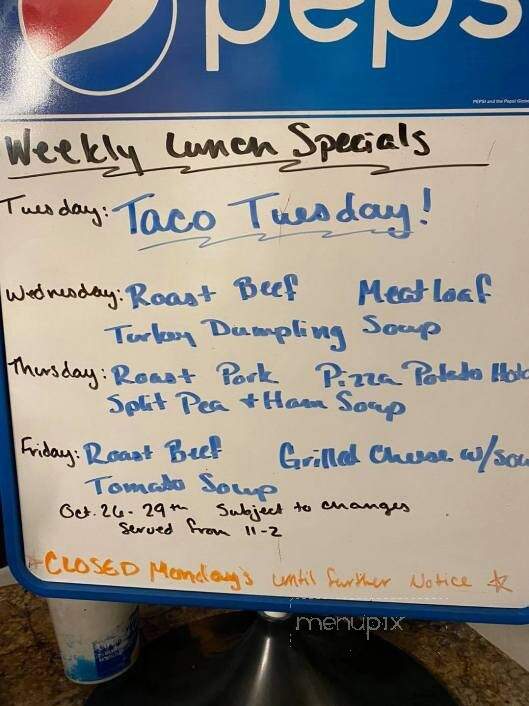 pepsi
PEPSI and the Pepsi Globe
Weekly Lunch Specials
Tuesday: Taco Tuesday!
Wednesday: Roast Beef Meatloaf
Turkey Dumpling Soup
Thursday: Roast Pork Pizza Potato
Split Pea + Ham Soup
Friday: Roast Beef Grilled Cheese w/sou
Tomato Soup
Oct. 26 - 29th Subject to changes
Served from 11-2
☆ CLOSED Monday's until further Notice ☆
menupix